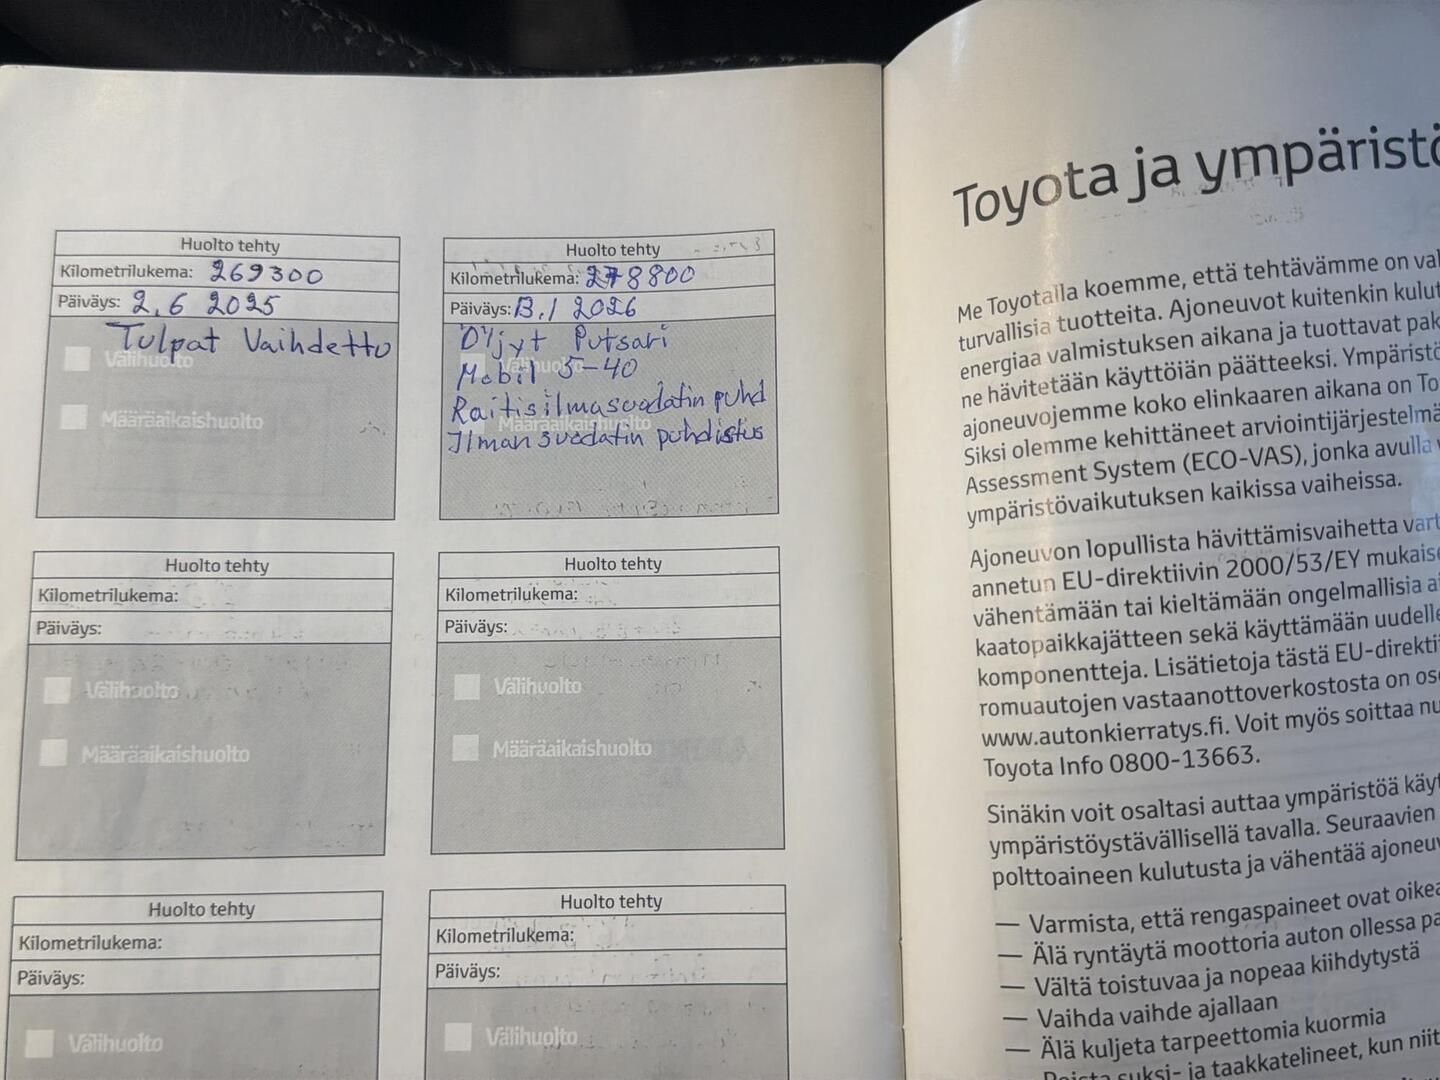 Huolto tehty
Kilometrilukema: 269300
Päiväys: 2.6 2025
Tulpat Vaihdettu
Välihuolto
Määräaikaishuolto
Huolto tehty
Kilometrilukema: 278800
Päiväys: 13.1 2026
Öljyt Putsari
Mobil 5-40
Välihuolto
Raitisilmasuodatin puhd
Määräaikaishuolto
Ilman suodatin puhdistus
Huolto tehty
Kilometrilukema:
Päiväys:
Välihuolto
Määräaikaishuolto
Huolto tehty
Kilometrilukema:
Päiväys:
Välihuolto
Määräaikaishuolto
Huolto tehty
Kilometrilukema:
Päiväys:
Välihuolto
Huolto tehty
Kilometrilukema:
Päiväys:
Välihuolto
Toyota ja ympäristö
Me Toyotalla koemme, että tehtävämme on val
turvallisia tuotteita. Ajoneuvot kuitenkin kulut
energiaa valmistuksen aikana ja tuottavat pak
ne hävitetään käyttöiän päätteeksi. Ympäristö
ajoneuvojemme koko elinkaaren aikana on To
Siksi olemme kehittäneet arviointijärjestelmä
Assessment System (ECO-VAS), jonka avulla
ympäristövaikutuksen kaikissa vaiheissa.
Ajoneuvon lopullista hävittämisvaihetta vart
annetun EU-direktiivin 2000/53/EY mukaise
vähentämään tai kieltämään ongelmallisia ai
kaatopaikkajätteen sekä käyttämään uudelle
komponentteja. Lisätietoja tästä EU-direkti
romuautojen vastaanottoverkostosta on oso
www.autonkierratys.fi. Voit myös soittaa nu
Toyota Info 0800-13663.
Sinäkin voit osaltasi auttaa ympäristöä käyt
ympäristöystävällisellä tavalla. Seuraavien
polttoaineen kulutusta ja vähentää ajoneuv
— Varmista, että rengaspaineet ovat oikea
— Älä ryntäytä moottoria auton ollessa pa
— Vältä toistuvaa ja nopeaa kiihdytystä
— Vaihda vaihde ajallaan
— Älä kuljeta tarpeettomia kuormia
— Poista suksi- ja taakkatelineet, kun niit